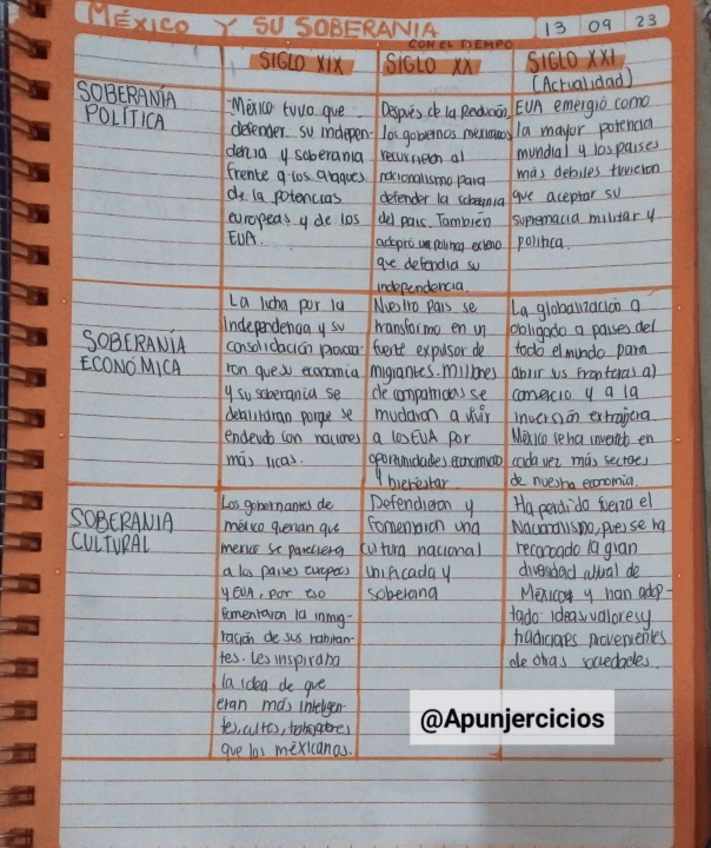 MÉXICO Y SU SOBERANIA
CON EL TIEMPO
13 09 23
SIGLO XIX
SIGLO XX
SIGLO XXI
(Actualidad)
SOBERANÍA
POLÍTICA
México tuvo que
defender su indepen-
dencia y soberania
frente a los ataques
de la potencias
europeas y de los
EUA.
Después de la Revolución,
los gobiernos mexicanos
recurrieron al
nacionalismo para
defender la soberania
del pais. También
adoptó un politica
que defendia su
independencia.
EUA emergió como
la mayor potencia
mundial y los paises
más debiles tuvieron
que aceptar su
supremacia militar y
politica.
SOBERANÍA
ECONÓMICA
La lucha por la
Independencia y su
consolidación provoca-
ron que su economia
y su soberania se
debilitaran porque se
endeudo con naciones
más ricas.
Nuestro Pais se
transformo en un
fuerte expulsor de
migrantes. Millones
de compatriotas se
mudaron a vivir
a los EUA por
oportunidades economicas
y bienestar
La globalización a
obligado a paises del
todo el mundo para
abrir sus fronteras al
comercio y a la
inversión extranjera.
México se ha invertido en
cada vez más sectores
de nuestra economia.
SOBERANIA
CULTURAL
Los gobernantes de
méxico querian que
mexico se pareciera
a los paises europeos
y EUA, por eso
fomentaron la inmig-
ración de sus habitan-
tes. Les inspiraba
la idea de que
eran más inteligen-
tes, cultos, trabajadores
que los méxicanos.
Defendieron y
Fomentaron una
cultura nacional
unificada y
soberana
Ha perdido fuerza el
Nacionalismo, pues se ha
reconocado la gran
diversidad cultural de
México y han adop-
tado ideas, valores y
tradiciones provenientes
de otras sociedades.
@Apunjercicios